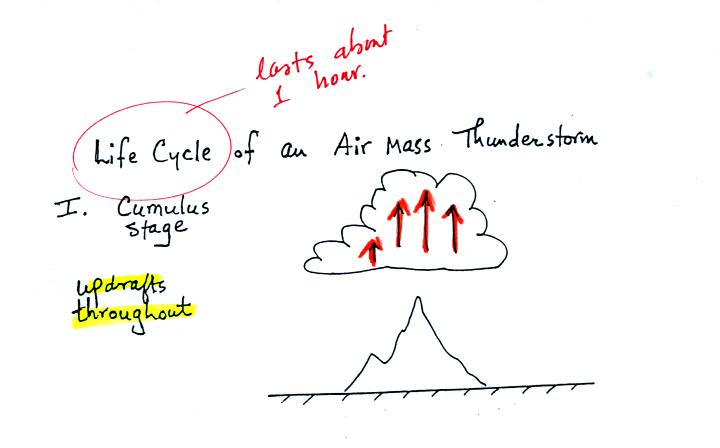 lasts about
1 hour.
Life Cycle of an Air Mass Thunderstorm
I. Cumulus
stage
updrafts
throughout